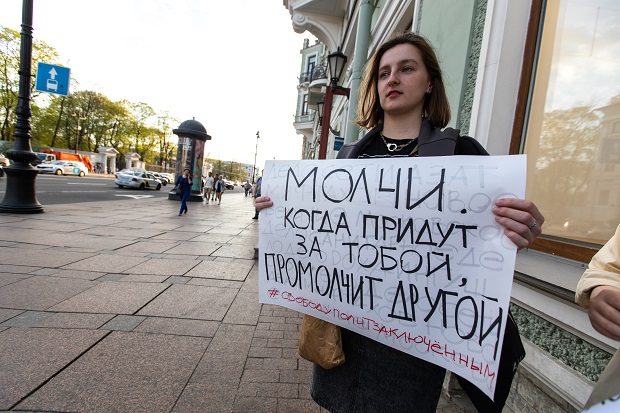 МОЛЧИ.
КОГДА ПРИДУТ
ЗА ТОБОЙ,
ПРОМОЛЧИТ ДРУГОЙ
#СВОБОДУПОЛИТЗАКЛЮЧЁННЫМ